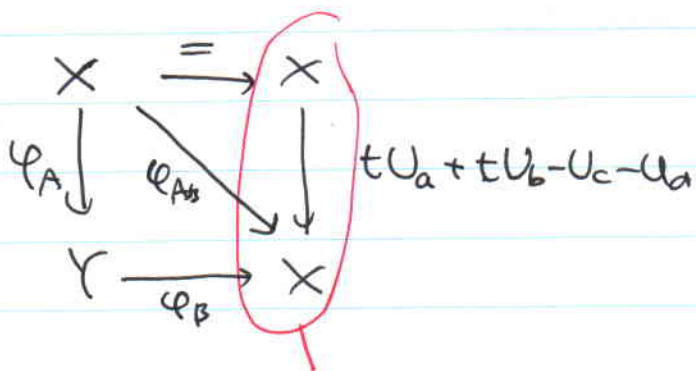 =
X → X
φ_A φ_{A+B} tU_a + tU_b - U_c - U_d
Y → X
φ_B